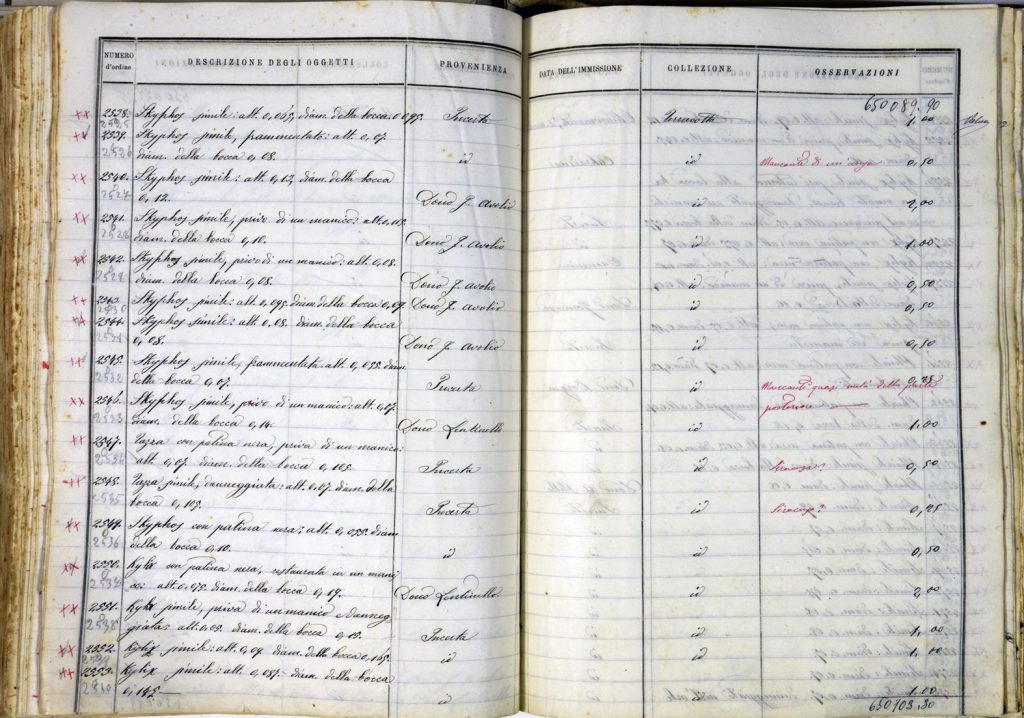 NUMERO d'ordine DESCRIZIONE DEGLI OGGETTI PROVENIENZA DATA DELL'IMMISSIONE COLLEZIONE OSSERVAZIONI
650089.90
2538. Skyphos simile: alt. 0,065, diam. della bocca 0,095. Incerta Terrecotte 1.00
2535
2539. Skyphos simile, frammentato: alt. 0,07.
2526 diam. della bocca 0,08. id id Mancante di un'ansa 0,50
2540. Skyphos simile: alt. 0,12, diam. della bocca
2527 0,12. Dono J. Avolio id 2,00
2541. Skyphos simile, privo di un manico: alt. 0,
2528 diam. della bocca 0,10. Dono J. Avolio id 1.00
2542. Skyphos simile, privo di un manico: alt. 0,08.
2529 diam. della bocca 0,08. Dono J. Avolio id 0,50
2543. Skyphos simile: alt. 0,095. diam. della bocca 0,09. Dono J. Avolio id 0,50
2530
2544. Skyphos simile: alt. 0,08. diam. della bocca
2531 0,08. Dono J. Avolio id 0,50
2545. Skyphos simile, frammentato: alt. 0,055. diam.
2532 della bocca 0,07. Incerta id Mancante quasi metà della parte 0,25
posteriore
2546. Skyphos simile, privo di un manico: alt. 0,07.
2533 diam. della bocca 0,14. Dono Lentinello id 1.00
2547. Tazza con patina nera, priva di un manico:
2534 alt. 0,07. diam. della bocca 0,105. Incerta id Siracusa? 0,50
2548. Tazza simile, danneggiata: alt. 0,07. diam. della
2535 bocca 0,105. Incerta id Siracusa? 0,25
2549. Skyphos con patina nera: alt. 0,055. diam.
2536 della bocca 0,10. id id 0,50
2550. Kylix con patina nera, restaurata in un mani
2537 co: alt. 0,075. diam. della bocca 0,19. Dono Lentinello id 2,00
2551. Kylix simile, priva di un manico e danneg
2538 giata: alt. 0,05. diam. della bocca 0,15. Incerta id 1,00
2552. Kylix simile: alt. 0,04. diam. della bocca 0,165. id id 1.00
2539
2553. Kylix simile: alt. 0,085. diam. della bocca
2540 0,145 id 1.00
650103.30